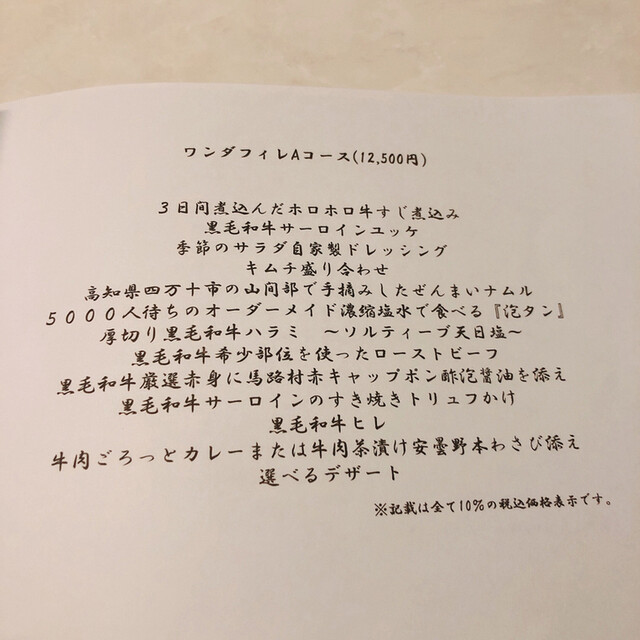 ワンダフィレAコース(12,500円)
3日間煮込んだホロホロ牛すじ煮込み
黒毛和牛サーロインユッケ
季節のサラダ自家製ドレッシング
キムチ盛り合わせ
高知県四万十市の山間部で手摘みしたぜんまいナムル
5000人待ちのオーダーメイド濃縮塩水で食べる『泡タン』
厚切り黒毛和牛ハラミ　～ソルティーブ天日塩～
黒毛和牛希少部位を使ったローストビーフ
黒毛和牛厳選赤身に馬路村赤キャップポン酢泡醤油を添え
黒毛和牛サーロインのすき焼きトリュフかけ
黒毛和牛ヒレ
牛肉ごろっとカレーまたは牛肉茶漬け安曇野本わさび添え
選べるデザート
※記載は全て10%の税込価格表示です。